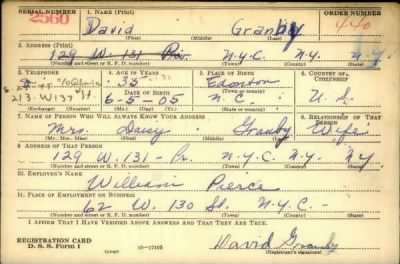 SERIAL NUMBER 1. NAME (Print) ORDER NUMBER
2560 David Granby 440
(First) (Middle) (Last)
2. ADDRESS (Print)
129 W. 131 N.Y.C. N.Y. N.Y.
(Number and street or R. F. D. number) (Town) (County) (State)
3. TELEPHONE 4. AGE IN YEARS 5. PLACE OF BIRTH 6. COUNTRY OF CITIZENSHIP
35 Edenton
DATE OF BIRTH (Town or county)
213 W 137 St. 6-5-05 N.C. U.S.
(Exchange) (Number) (Mo.) (Day) (Yr.) (State or country)
7. NAME OF PERSON WHO WILL ALWAYS KNOW YOUR ADDRESS 8. RELATIONSHIP OF THAT PERSON
Mrs. Daisy Granby Wife
(Mr., Mrs., Miss) (First) (Middle) (Last)
9. ADDRESS OF THAT PERSON
129 W. 131 - N.Y.C. N.Y. NY
(Number and street or R. F. D. number) (Town) (County) (State)
10. EMPLOYER'S NAME
William Pierce
11. PLACE OF EMPLOYMENT OR BUSINESS
62 W. 130 St. N.Y.C. -
(Number and street or R. F. D. number) (Town) (County) (State)
I AFFIRM THAT I HAVE VERIFIED ABOVE ANSWERS AND THAT THEY ARE TRUE.
REGISTRATION CARD
D. S. S. Form 1 16-17105 David Granby
(Registrant's signature)